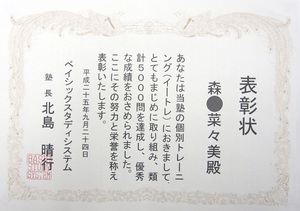 表彰状
森●菜々美殿
あなたは当塾の個別トレーニ
ング(イートレ)におきまして
とてもまじめに取り組み、類
計5000問を達成し、優秀
な成績をおさめられました。
ここにその努力と栄誉を称え
表彰いたします。
平成二十五年九月二十四日
ベイシックスタディシステム
塾長 北島 晴行